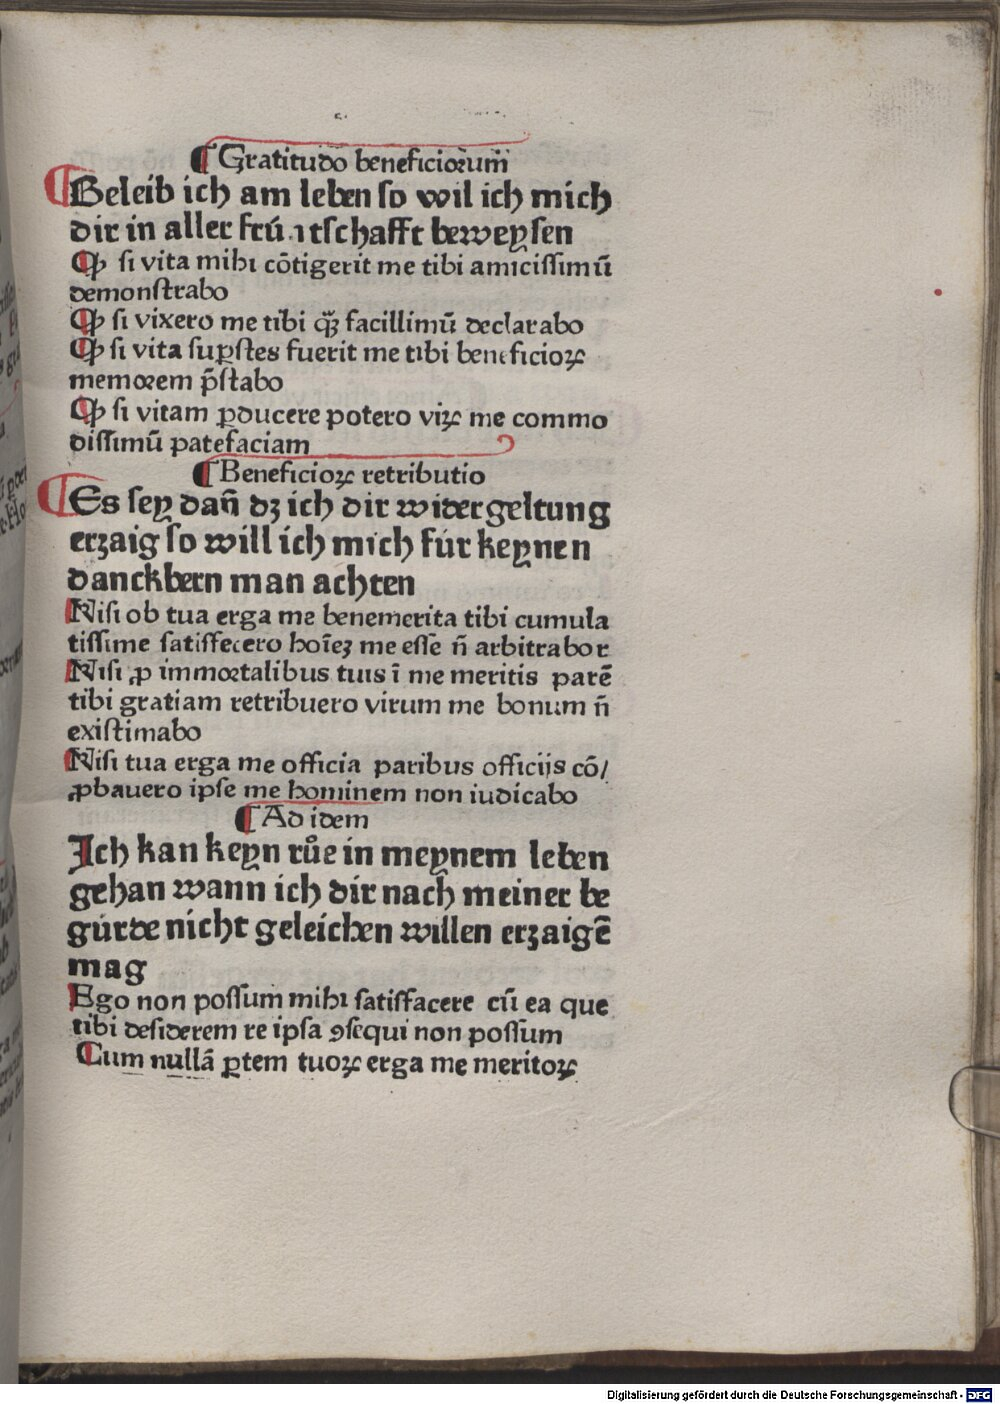 ¶ Gratitudo beneficiorum̄
Beleib ich am leben so wil ich mich
dir in aller frúntschafft beweysen
Ꝙ si vita mihi cōtigerit me tibi amicissimū
demonstrabo
Ꝙ si vixero me tibi qȝ̄ facillimū declarabo
Ꝙ si vita suꝑstes fuerit me tibi beneficioꝝ
memorem p̄stabo
Ꝙ si vitam ꝓducere potero viꝝ me commo
dissimū patefaciam
¶ Beneficioꝝ retributio
Es sey dan̄ dz ich dir widergeltung
erzaig so will ich mich fúr keynen
danckbern man achten
Nisi ob tua erga me benemerita tibi cumula
tissime satisfecero hoīeȝ me esse n̄ arbitrabor
Nisi ꝓ immortalibus tuis ī me meritis parē
tibi gratiam retribuero virum me bonum n̄
existimabo
Nisi tua erga me officia paribus officijs cō/
ꝓbauero ipse me hominem non iudicabo
¶ Ad idem
Ich kan keyn růe in meynem leben
gehan wann ich dir nach meiner be
gúrde nicht geleichen willen erzaigē
mag
Ego non possum mihi satisfacere cū ea que
tibi desiderem re ipsa ꝯsequi non possum
Cum nullā ꝑtem tuoꝝ erga me meritoꝝ
Digitalisierung gefördert durch die Deutsche Forschungsgemeinschaft - DFG